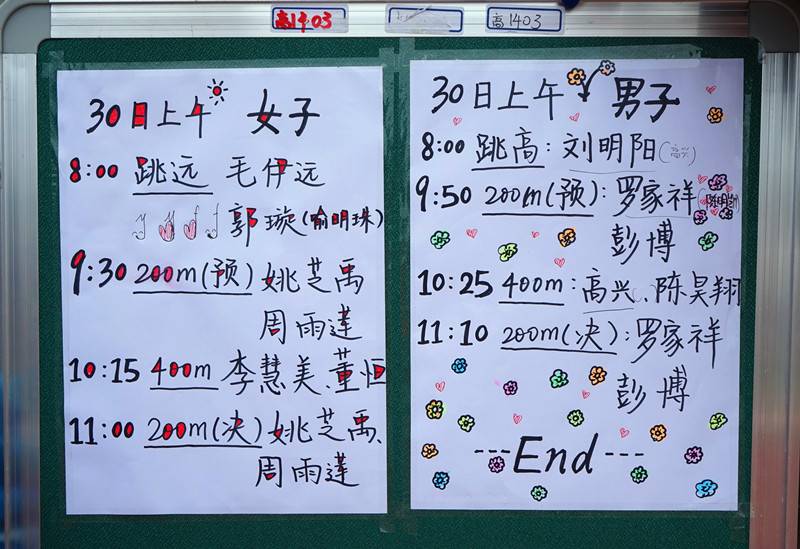 高1403
高1403
30日上午 女子
8:00 跳远 毛伊远
郭璇(喻明珠)
9:30 200m(预) 姚芝禹
周雨莲
10:15 400m 李慧美、董恒
11:00 200m(决) 姚芝禹、
周雨莲
30日上午 男子
8:00 跳高: 刘明阳(高兴)
9:50 200m(预): 罗家祥
彭博
10:25 400m: 高兴、陈昊翔
11:10 200m(决): 罗家祥
彭博
---End---